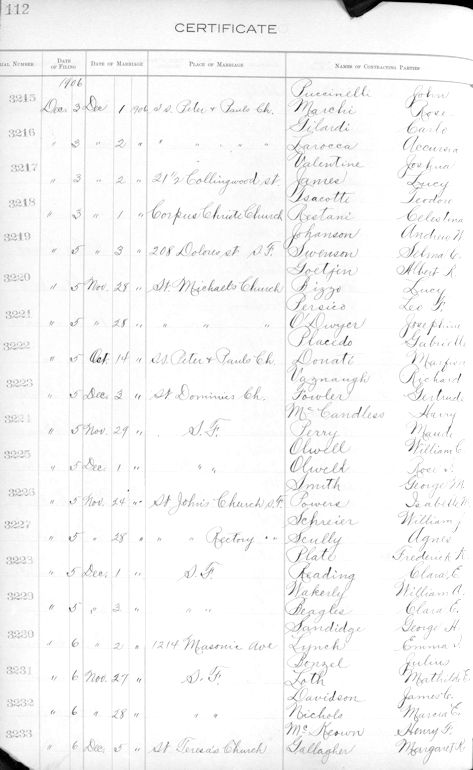 112
CERTIFICATE
SERIAL NUMBER DATE OF FILING DATE OF MARRIAGE PLACE OF MARRIAGE NAMES OF CONTRACTING PARTIES
1906
Puccinelli John
3215 Dec 3 Dec 1 906 SS. Peter & Pauls Ch. Marchi Rose
Gilardi Carlo
3216 " 3 " 2 " " " " " Larocca Accursia
Valentine Joshua
3217 " 3 " 2 " 21½ Collingwood st. James Lucy
3218 " 3 " 1 " Corpus Christe Church Restani Celestina
Johanson Andrew W
3219 " 5 " 3 " 208 Dolores st S.F. Swenson Selma C.
Albert R
3220 " 5 Nov. 28 " St Michaels Church Rizzo Lucy
Persico Leo F.
3221 " 5 " 28 " " " " O'Dwyer Josephine
Placido Gabriele
3222 " 5 Oct. 14 " SS. Peter & Pauls Ch. Donati
Vaughaugh Richard
3223 " 5 Dec. 3 " St Dominics Ch. Fowler Gertrude
McCandless Harry
3224 " 5 Nov. 29 " S.F. Perry Maude
Olwell William C.
3225 " 5 Dec. 1 " " " Olwell Rose
Smith George M.
3226 " 5 Nov. 24 " St John's Church S.F. Powers
Schreier William J
3227 " 5 " 28 " " " Rectory " " Scully Agnes
Plate Frederick
3228 " 5 Dec. 1 " S.F. Reading Clara E.
Wakerly William A.
3229 " 5 " 3 " " " Beagles Clara E.
Sandidge George H.
3230 " 6 " 2 " 1214 Masonic Ave Lynch Emma
Penzel Julius
3231 " 6 Nov. 27 " S.F. Loth Mathilde E.
Davidson James C.
3232 " 6 " 28 " " " Nichols Marcia E.
McKeown Henry F.
3233 " 6 Dec. 5 " St Teresa's Church Gallagher Margaret R.